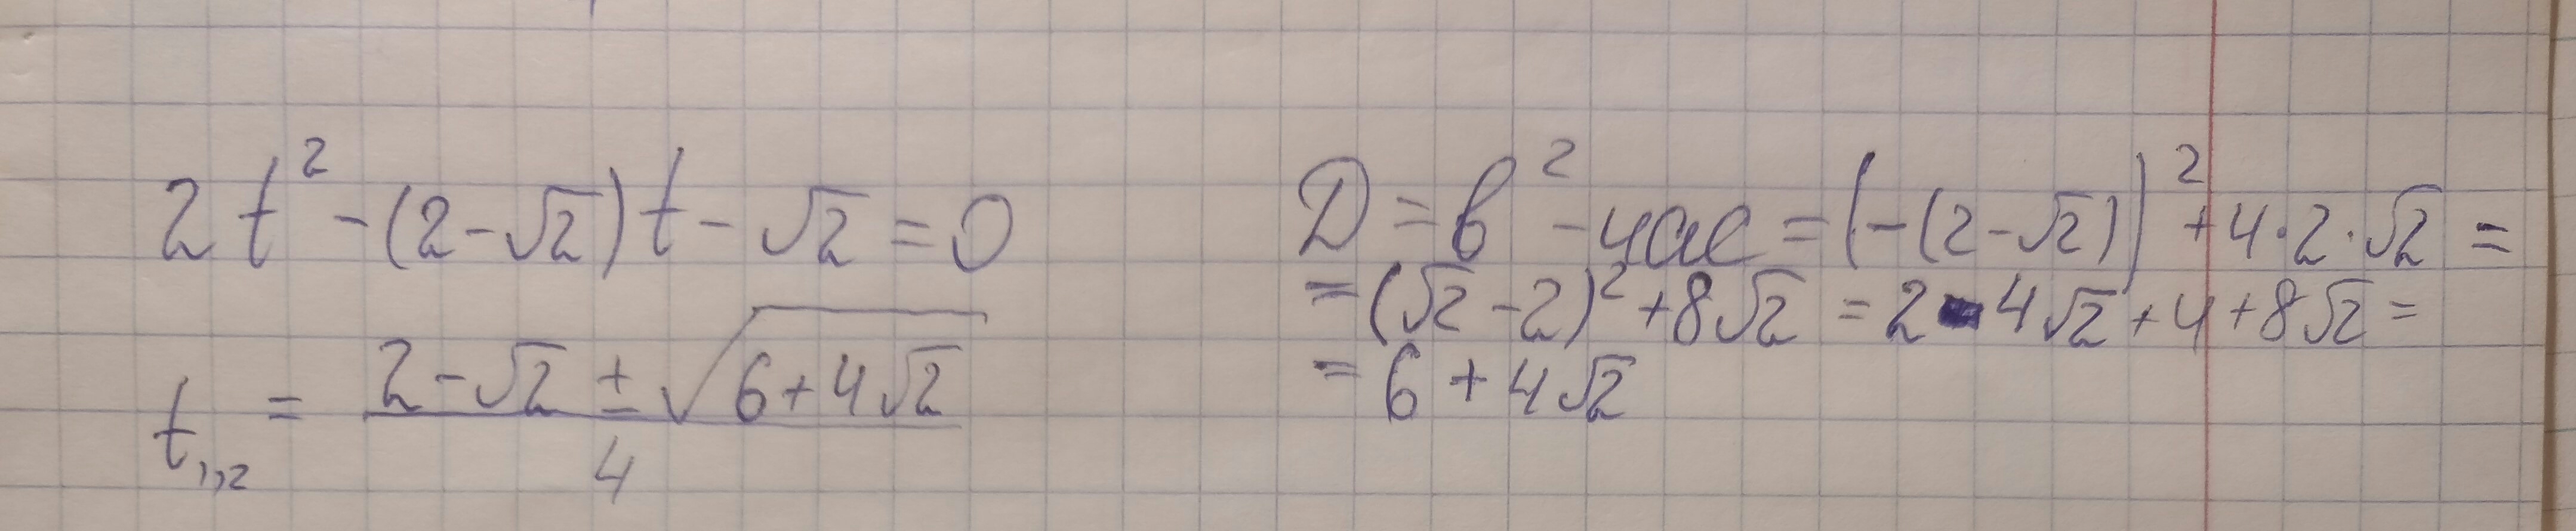 2t² - (2 - √2)t - √2 = 0
t₁,₂ = (2 - √2 ± √(6 + 4√2)) / 4
D = b² - 4ac = (-(2 - √2))² + 4·2·√2 =
= (√2 - 2)² + 8√2 = 2 - 4√2 + 4 + 8√2 =
= 6 + 4√2